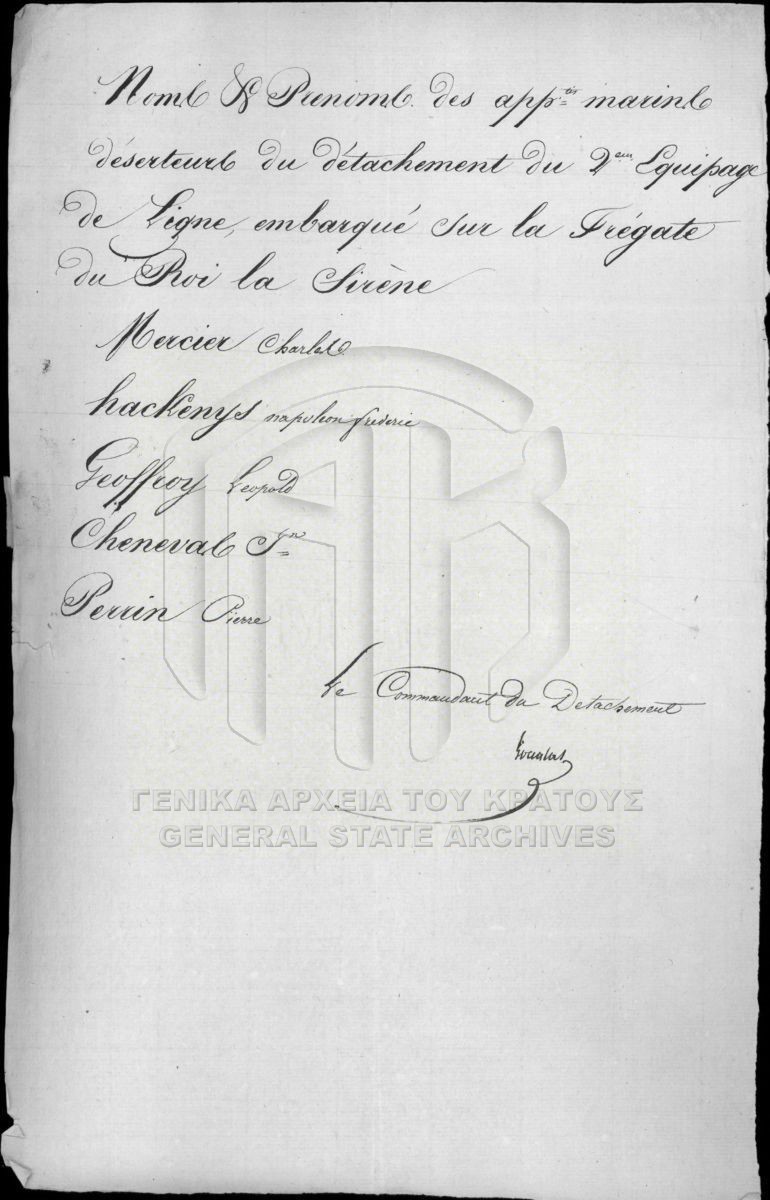 Noms & Prenoms des app.tis marins
déserteurs du détachement du 2.em Equipage
de Ligne, embarqué sur la Frégate
du Roi la Sirène
Mercier Charles
hackenys napoleon frederic
Geoffroy Leopold
Cheneval J.n
Perrin Pierre
Le Commandant du Detachement
ΓΕΝΙΚΑ ΑΡΧΕΙΑ ΤΟΥ ΚΡΑΤΟΥΣ
GENERAL STATE ARCHIVES